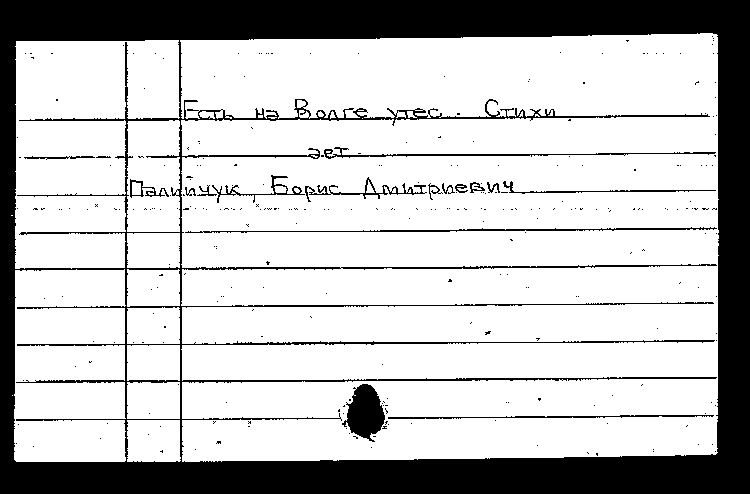 Есть на Волге утес. Стихи
авт.
Палийчук, Борис Дмитриевич